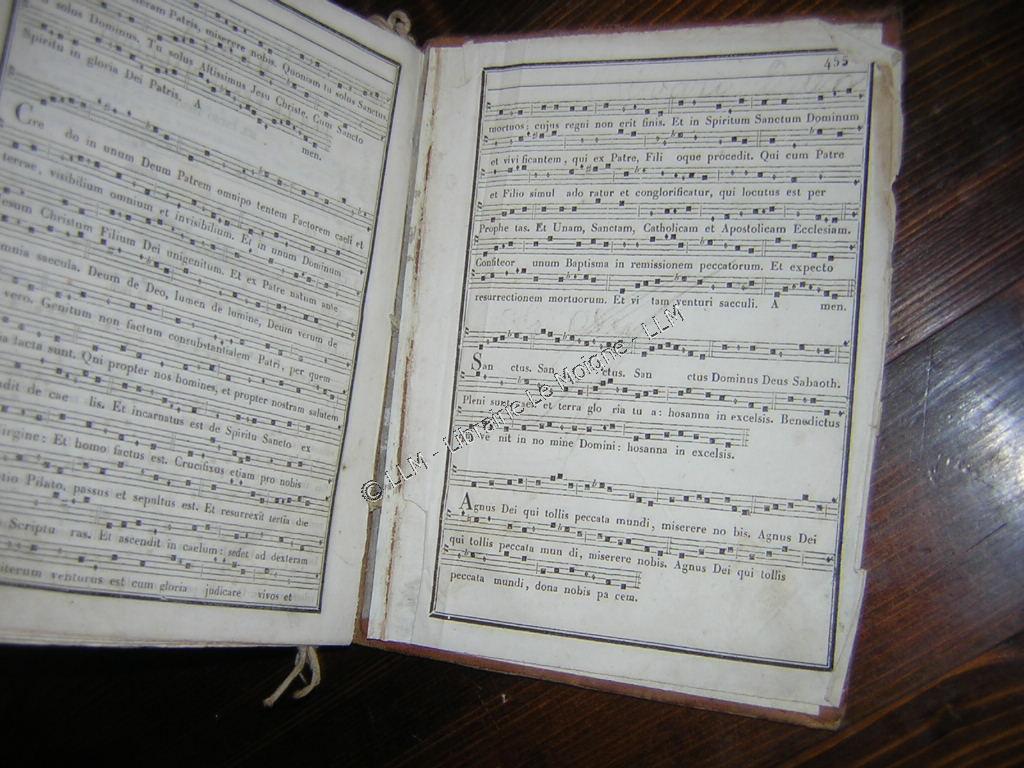 Patris, miserere nobis. Quoniam tu solus Sanctus.
solus Dominus. Tu solus Altissimus Jesu Christe. Cum Sancto
Spiritu in gloria Dei Patris. A men.
Cre do in unum Deum Patrem omnipo tentem Factorem caeli et
terrae, visibilium omnium et invisibilium. Et in unum Dominum
esum Christum Filium Dei unigenitum. Et ex Patre natum ante
mnia saecula. Deum de Deo, lumen de lumine, Deum verum de
vero. Genitum non factum consubstantialem Patri, per quem
facta sunt. Qui propter nos homines, et propter nostram salutem
dit de cae lis. Et incarnatus est de Spiritu Sancto ex
irgine: Et homo factus est. Crucifixus etiam pro nobis
tio Pilato, passus et sepultus est. Et resurrexit tertia die
Scriptu ras. Et ascendit in caelum: sedet ad dexteram
iterum venturus est cum gloria judicare vivos et
455
mortuos; cujus regni non erit finis. Et in Spiritum Sanctum Dominum
et vivi ficantem, qui ex Patre, Fili oque procedit. Qui cum Patre
et Filio simul ado ratur et conglorificatur, qui locutus est per
Prophe tas. Et Unam, Sanctam, Catholicam et Apostolicam Ecclesiam.
Confiteor unum Baptisma in remissionem peccatorum. Et expecto
resurrectionem mortuorum. Et vi tam venturi saeculi. A men.
San ctus. San ctus. San ctus Dominus Deus Sabaoth.
Pleni sunt et terra glo ria tu a: hosanna in excelsis. Benedictus
nit in no mine Domini: hosanna in excelsis.
Agnus Dei qui tollis peccata mundi, miserere no bis. Agnus Dei
qui tollis peccata mun di, miserere nobis. Agnus Dei qui tollis
peccata mundi, dona nobis pa cem.
© LLM - Librairie Le Moigne - LLM